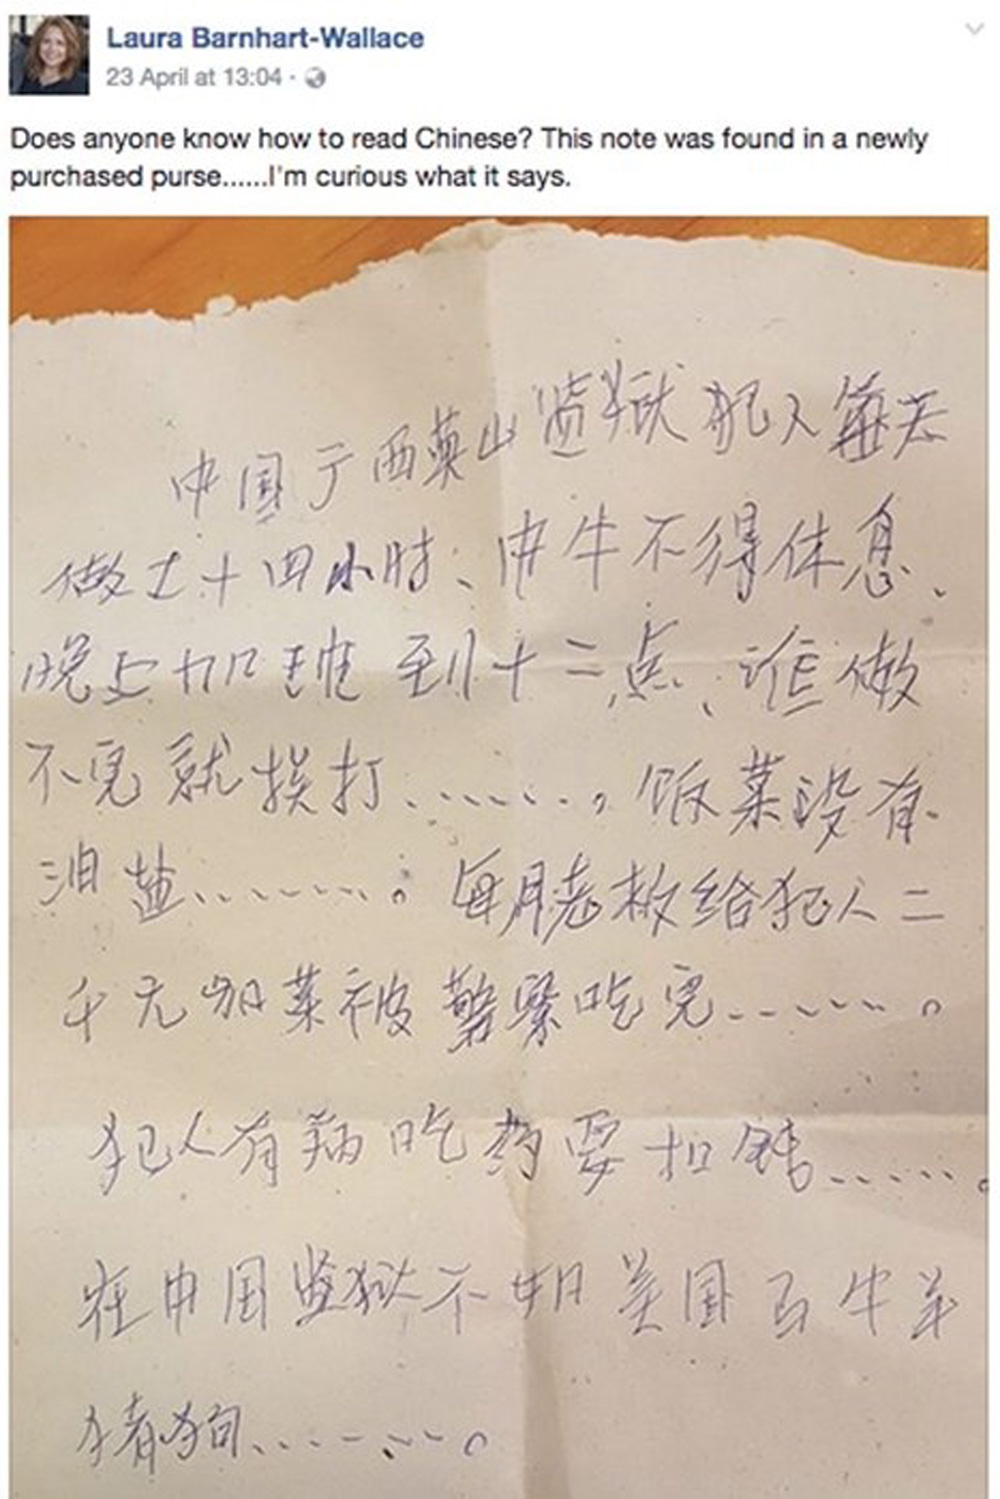 Laura Barnhart-Wallace
23 April at 13:04 ·
Does anyone know how to read Chinese? This note was found in a newly
purchased purse......I'm curious what it says.
中国广西英山监狱犯人每天
做工十四小时、中午不得休息、
晚上加班到十二点、谁做
不完就挨打........, 饭菜没有
油盐........。每月老板给犯人二
千元加菜被警察吃完.......。
犯人有病吃药要扣钱......。
在中国监狱不如美国马牛羊
猪狗.......。